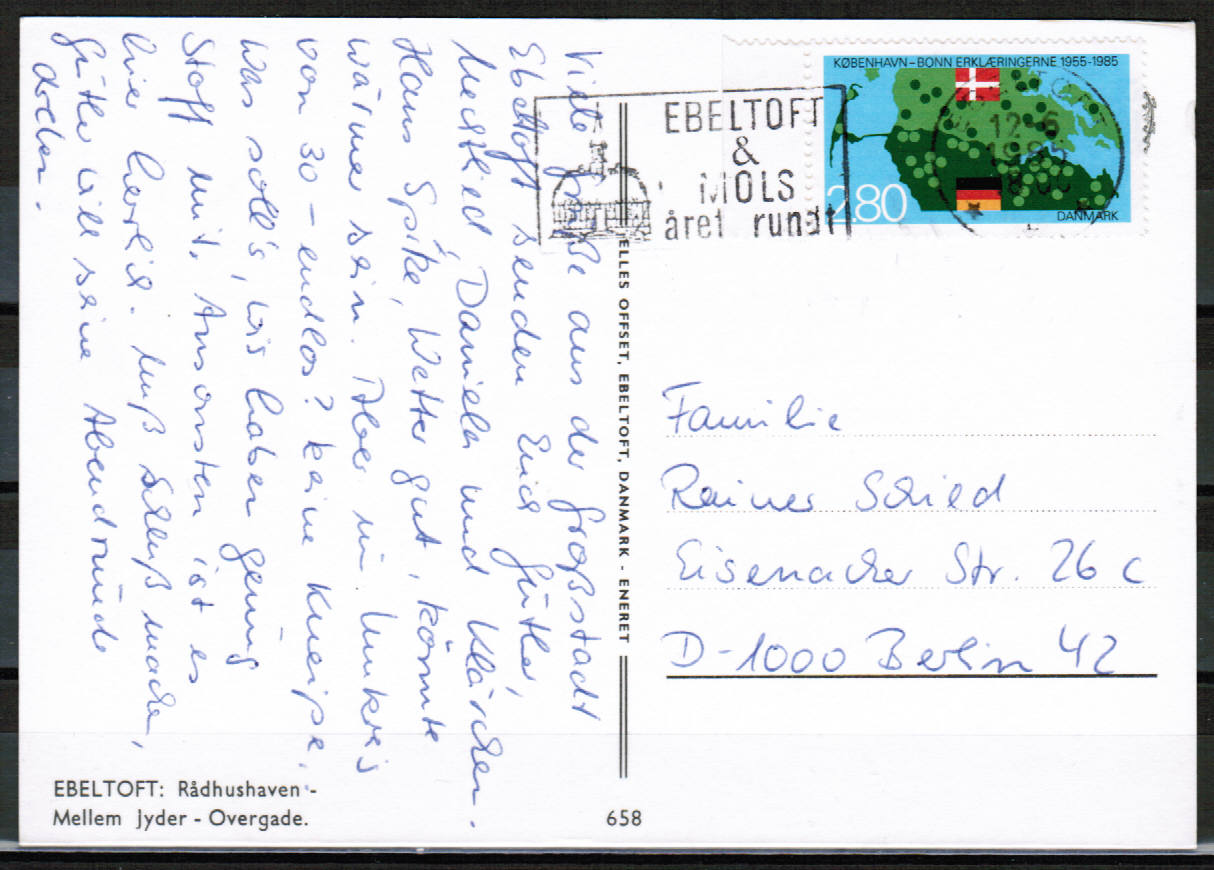 Viele Grüße aus der Großstadt
Ebeltoft senden Euch Günther,
Mechthild, Daniela und Klärchen.
Haus Spike, Wetter gut, könnte
wärmer sein. Aber im Umkreis
von 30 - endlos? keine Kneipe.
Was soll's, wir haben genug
Stoff mit. Ansonsten ist es
hier herrlich. Muß Schluß machen,
will seine Abendrunde
drehen.
KØBENHAVN-BONN ERKLÆRINGERNE 1955-1985
2.80
DANMARK
12-6
1985
EBELTOFT
&
MOLS
året rundt
ELLES OFFSET, EBELTOFT, DANMARK - ENERET
Familie
Rainer Schied
Eisenacher Str. 26 c
D-1000 Berlin 42
EBELTOFT: Rådhushaven -
Mellem Jyder - Overgade.
658